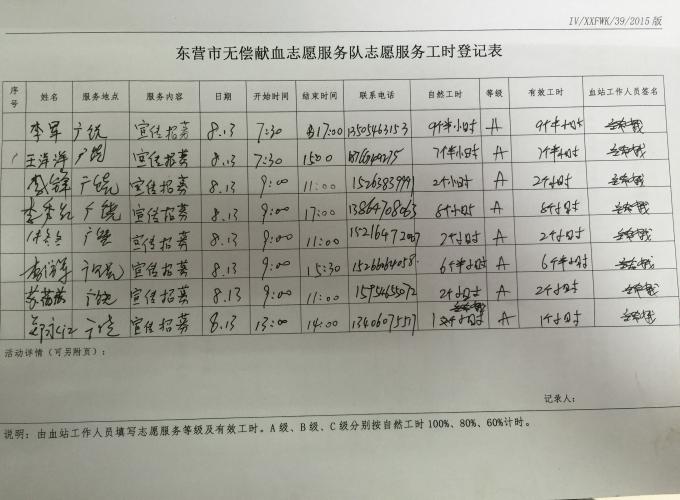 IV/XXFWK/39/2015版
东营市无偿献血志愿服务队志愿服务工时登记表
序号 姓名 服务地点 服务内容 日期 开始时间 结束时间 联系电话 自然工时 等级 有效工时 血站工作人员签名
李军 广饶 宣传招募 8.13 7:30 17:00 13505463153 9个半小时 A 9个半小时
王洋洋 广饶 宣传招募 8.13 7:30 1500 7个半小时 A 7个半小时
广饶 宣传招募 8.13 9:00 11:00 15263839991 2个小时 A 2个小时
李秀 广饶 宣传招募 8.13 9:00 17:00 13864708063 8个小时 A 8个小时
广饶 宣传招募 8.13 9:00 11:00 2个小时 A 2个小时
广饶 宣传招募 8.13 9:00 15:30 6个半小时 A 6个半小时
广饶 宣传招募 8.13 9:00 11:00 2个小时 A 2个小时
广饶 宣传招募 8.13 13:00 14:00 13406075517 1个小时 A 1个小时
活动详情（可另附页）：
记录人：
说明：由血站工作人员填写志愿服务等级及有效工时。A级、B级、C级分别按自然工时100%、80%、60%计时。